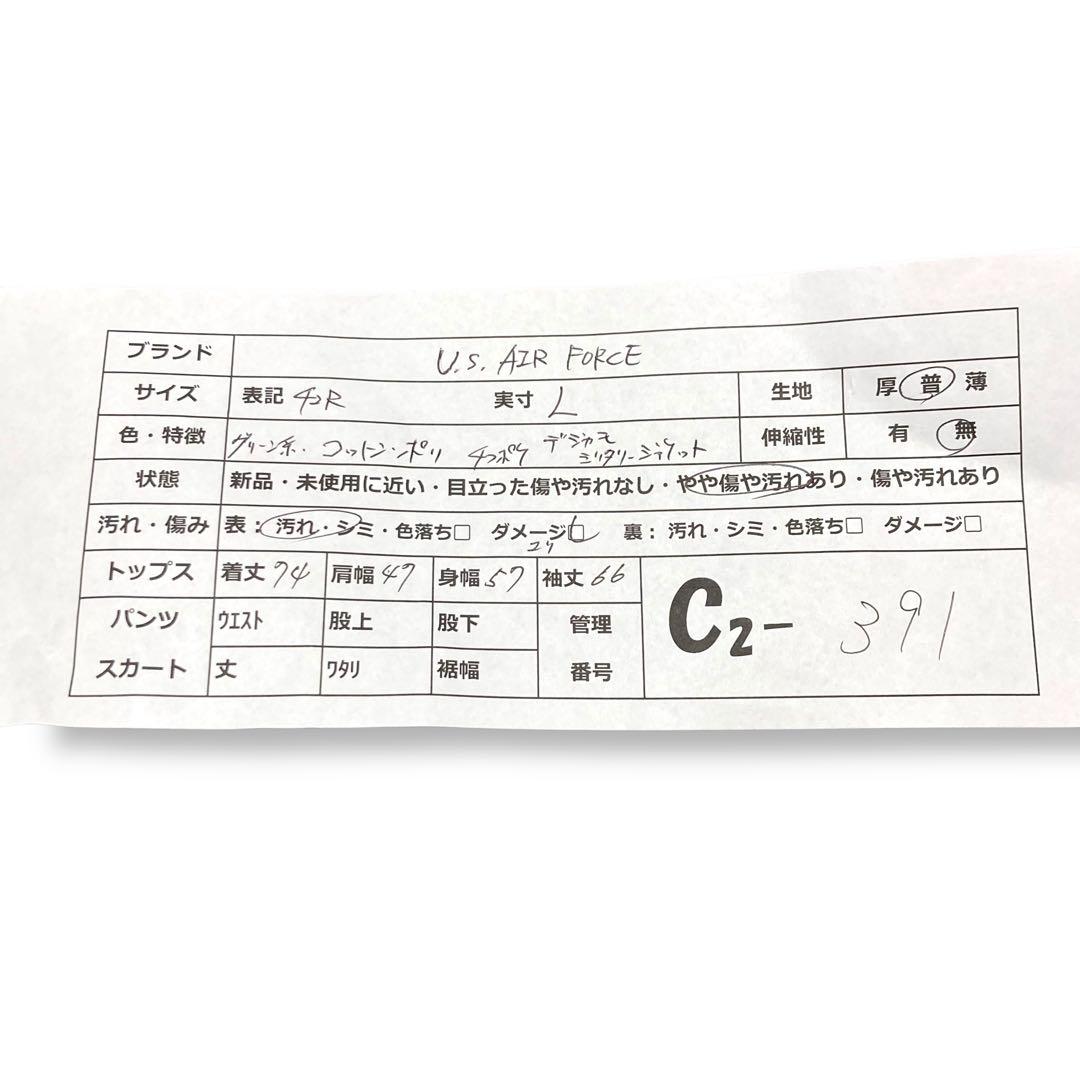 ブランド U.S. AIR FORCE
サイズ 表記 42R 実寸 L 生地 厚 普 薄
色・特徴 グリーン系・コットン・ポリ 4つポケ デジカモ ミリタリージャケット 伸縮性 有 無
状態 新品・未使用に近い・目立った傷や汚れなし・やや傷や汚れあり・傷や汚れあり
汚れ・傷み 表：汚れ・シミ・色落ち□ ダメージ□ 裏：汚れ・シミ・色落ち□ ダメージ□
トップス 着丈 74 肩幅 47 身幅 57 袖丈 66
パンツ ウエスト 股上 股下 管理 C2- 391
スカート 丈 ワタリ 裾幅 番号